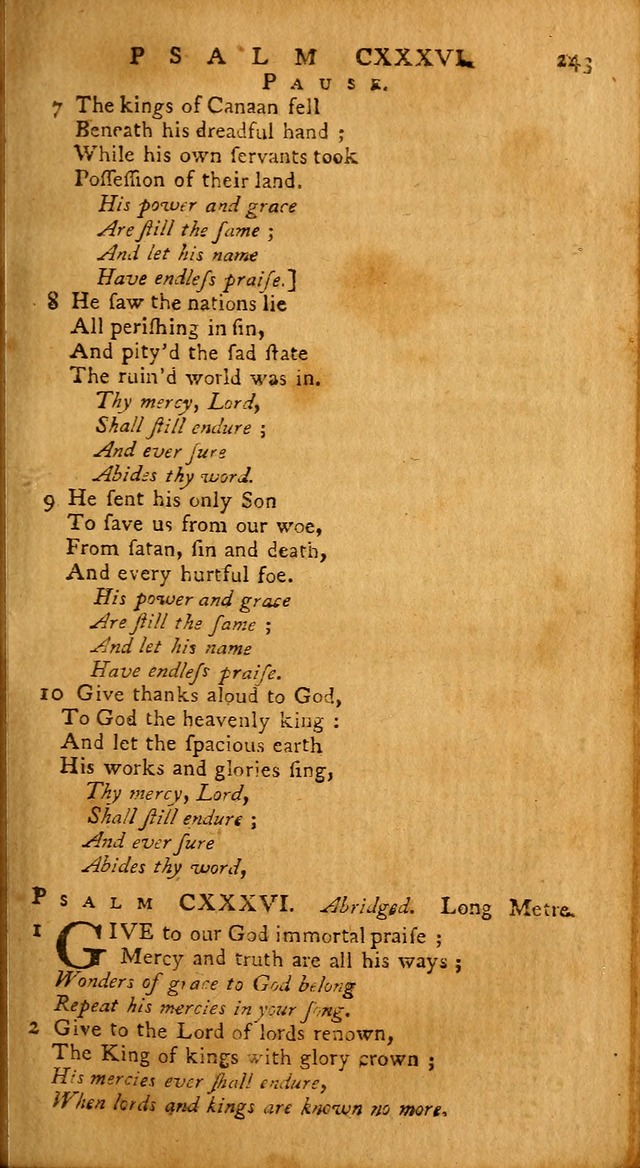 PSALM CXXXVI. 243
PAUSE.
7 The kings of Canaan fell
Beneath his dreadful hand ;
While his own ſervants took
Poſſeſſion of their land.
His power and grace
Are ſtill the ſame ;
And let his name
Have endleſs praiſe.]
8 He ſaw the nations lie
All periſhing in ſin,
And pity'd the ſad ſtate
The ruin'd world was in.
Thy mercy, Lord,
Shall ſtill endure ;
And ever ſure
Abides thy word.
9 He ſent his only Son
To ſave us from our woe,
From ſatan, ſin and death,
And every hurtful foe.
His power and grace
Are ſtill the ſame ;
And let his name
Have endleſs praiſe.
10 Give thanks aloud to God,
To God the heavenly king :
And let the ſpacious earth
His works and glories ſing,
Thy mercy, Lord,
Shall ſtill endure ;
And ever ſure
Abides thy word,
PSALM CXXXVI. Abridged. Long Metre.
1 GIVE to our God immortal praiſe ;
Mercy and truth are all his ways ;
Wonders of grace to God belong
Repeat his mercies in your ſong.
2 Give to the Lord of lords renown,
The King of kings with glory crown ;
His mercies ever ſhall endure,
When lords and kings are known no more.